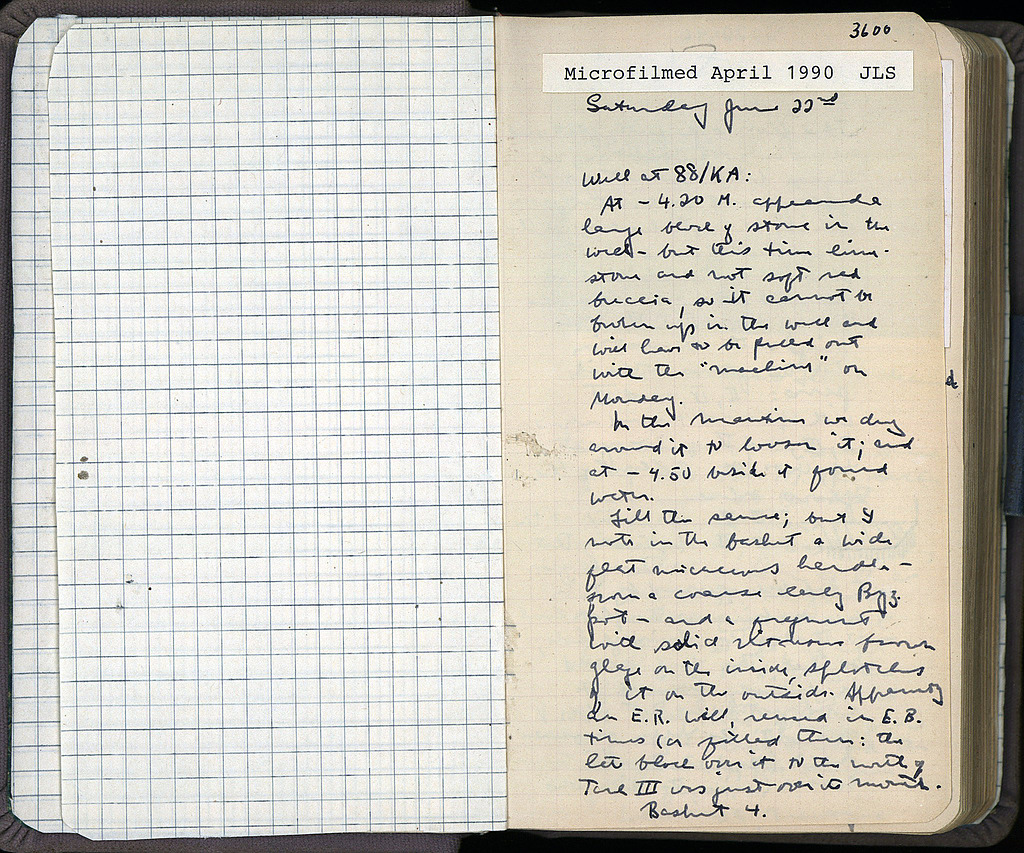 3600
Microfilmed April 1990 JLS
Saturday June 22nd
Well at 88/KA:
At - 4.20 M. appeared a
large block of stone in the
well - but this time lime-
stone and not soft red
breccia, so it cannot be
broken up in the well and
will have to be pulled out
with the "machine" on
Monday.
In the meantime we dug
around it to loosen it; and
at - 4.50 beside it found
water.
Fill the same; but I
note in the basket a wide
flat micaceous handle -
from a coarse early Byz.
pot - and a fragment
with solid brown
glaze on the inside, splotches
of it on the outside. Apparently
an E.R. well, reused in E.B.
times (or filled then: the
late block over it to the north of
III was just over its mouth.
Basket 4.